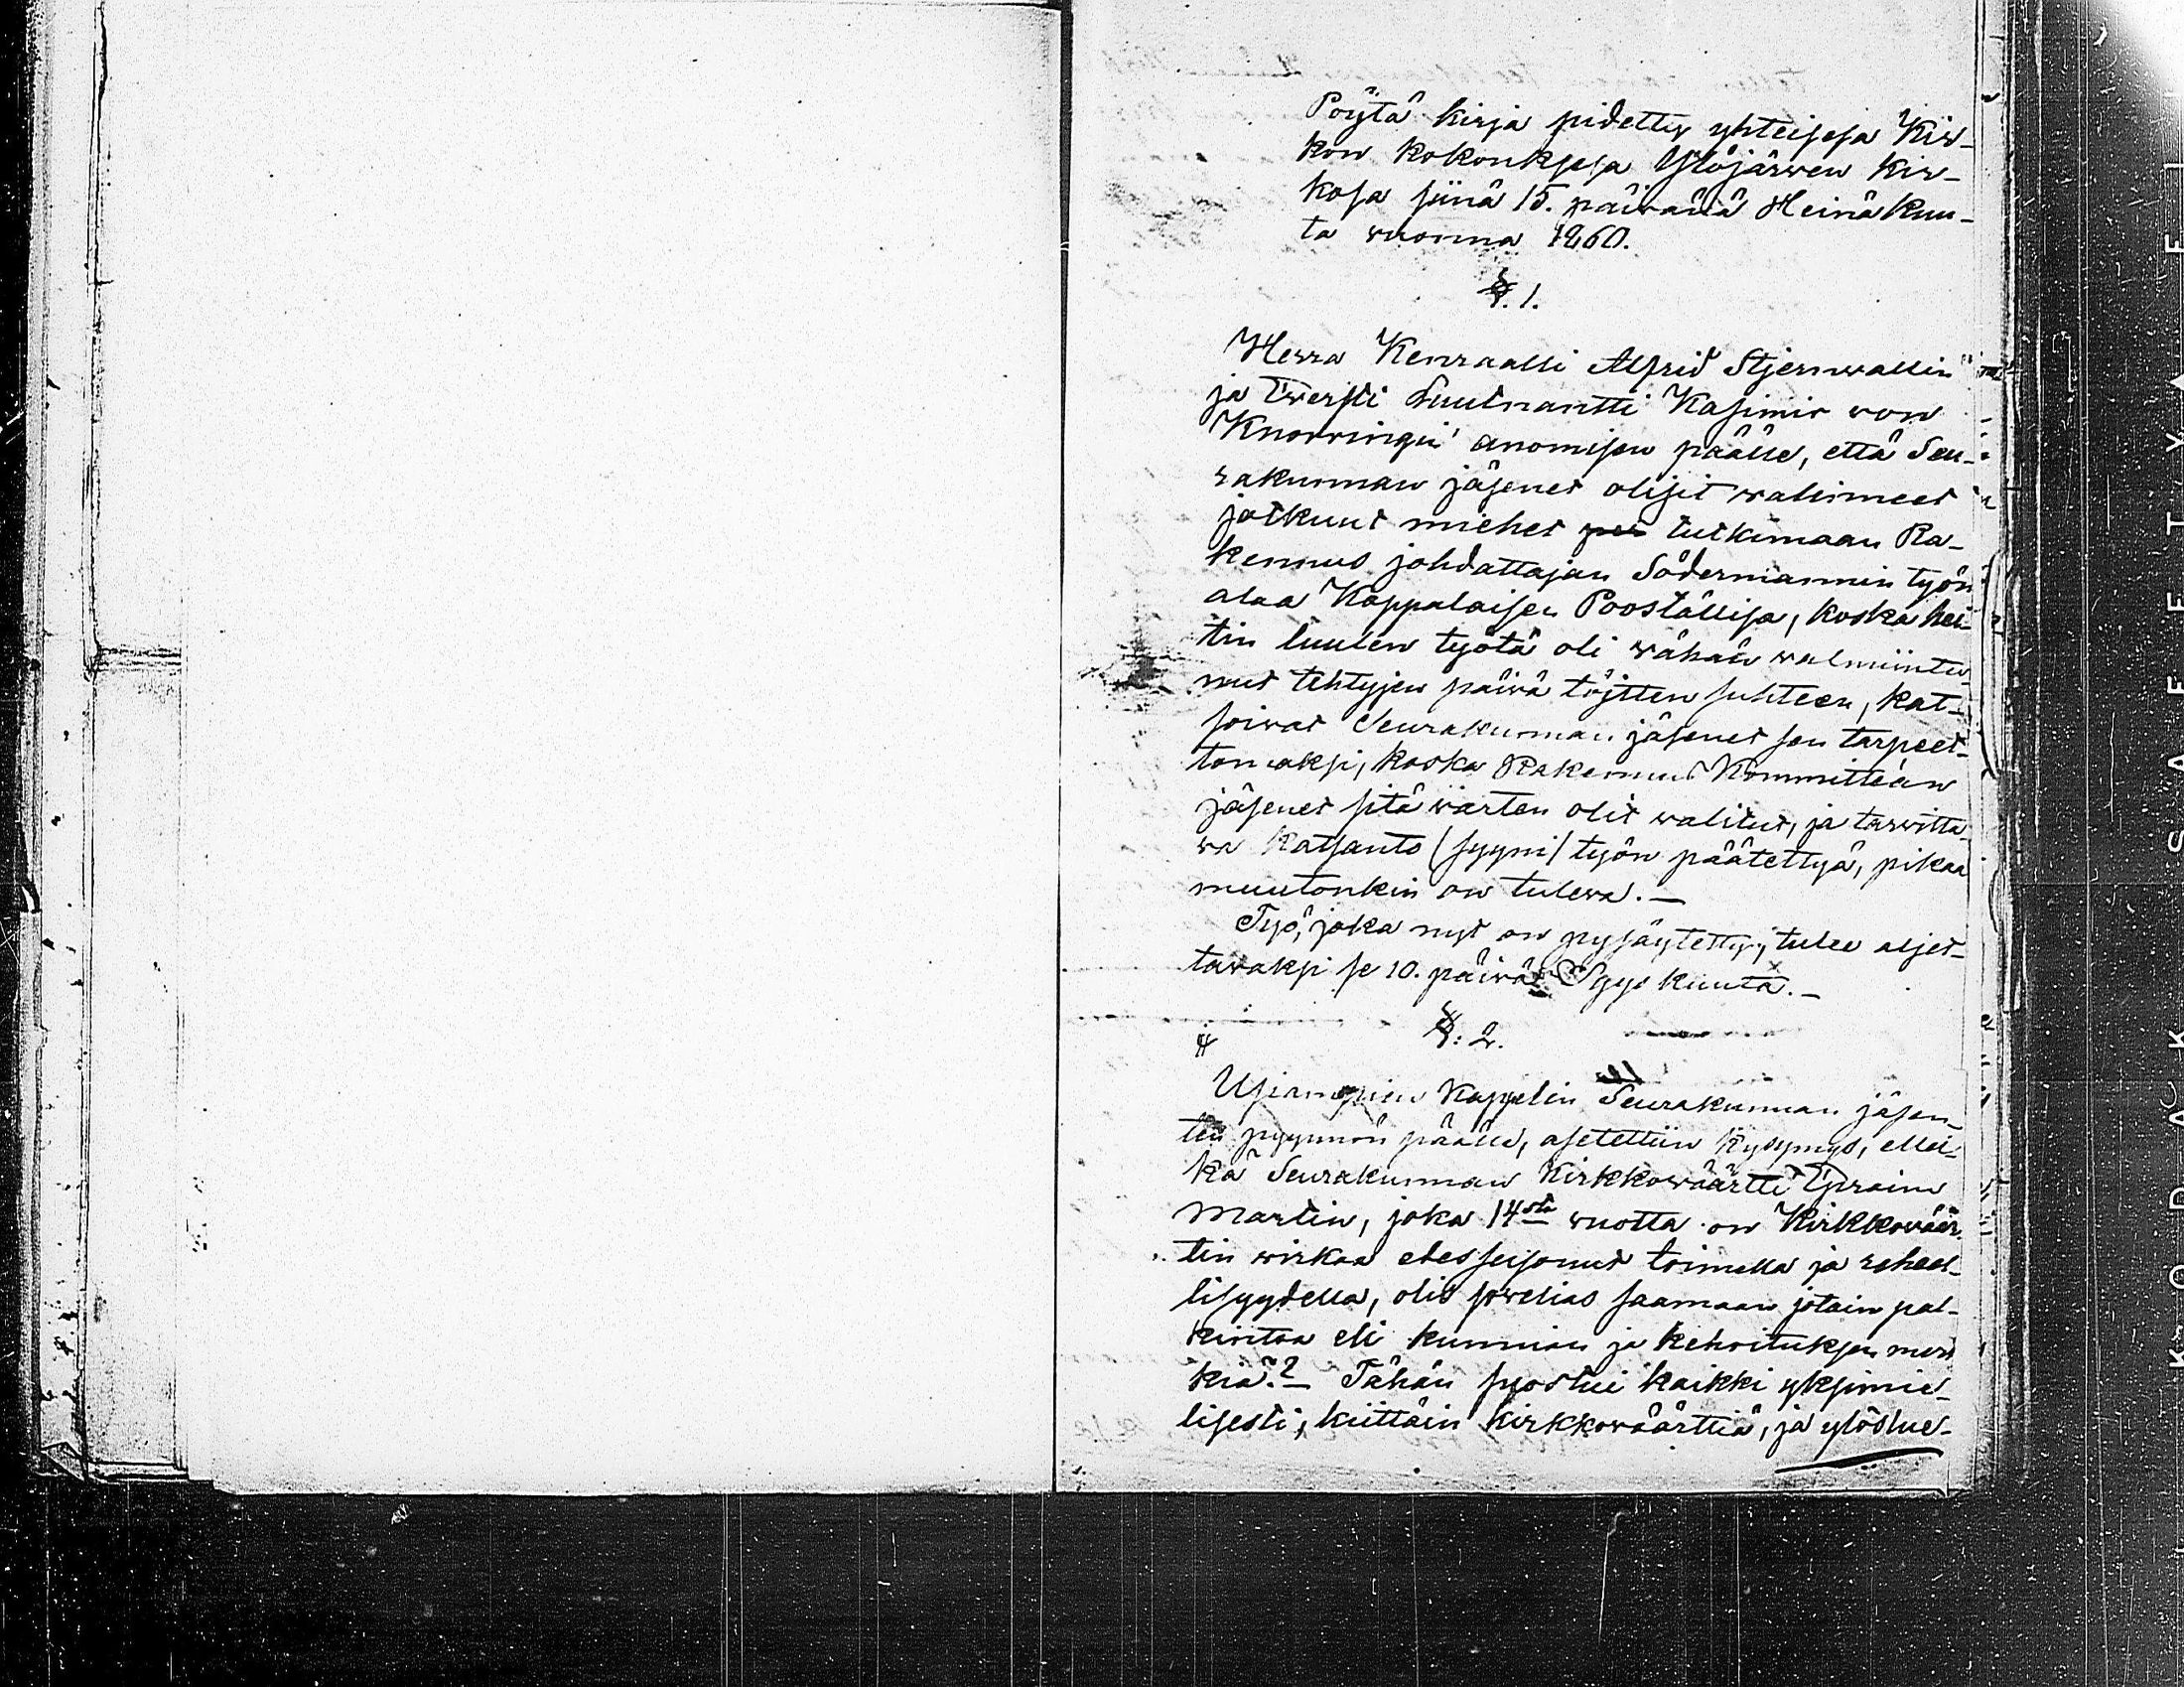 Pöytä kirja pidetty yhteisesä Kir-
kon kokouksesa Ylöjärwen kir-
kosa siinä 15. päiwänä Heinäkuu-
ta wuonna 1860.
§. 1.
Herra Kenraalli Alfrid Stjernwallin
ja Öwersti Luutnantti Kasimir von
Knorringin anomisen päälle, että Seu-
rakunnan jäsenet olisit walinneet
jotkuut miehet tutkimaan Ra-
kennus johdattajan Södermannin työn
alaa Kappalaisen Pooställisä, koska hei-
tin luulen työtä oli wähän walmiintu-
nut tehtyjen päiwä töitten suhteen, kat-
soiwat Seurakunnan jäsenet sen tarpeet-
tomaksi, koska Rakennus Kommittéan
jäsenet sitä wärten olit walitut, ja tarwitta-
wa katsanto (syyni) työn päätettyä, pikaa
muutonkin on tulewa. —
Työ, joka nyt on pysäytetty, tulee aljet-
tawaksi se 10. päiwä Syys kuuta. —
§: 2.
Usiampien Kappelin Seurakunnan jäsen-
ten pyynnön päälle, asetettiin kysymys, ellei-
kä Seurakunnan Kirkkowäärtti Efraim
Martin, joka 14sta wuotta on Kirkkowäär-
tin wirkaa edesseisonut toimella ja rehel-
lisyydellä, olis sowelias saamaan jotain pal-
kintoa eli kunnian ja kehoituksen mer-
kiä? — Tähän suostui kaikki yksimie-
lisesti, kiittäin kirkkowäärttiä, ja ylöslue-
KODAK SAFETY